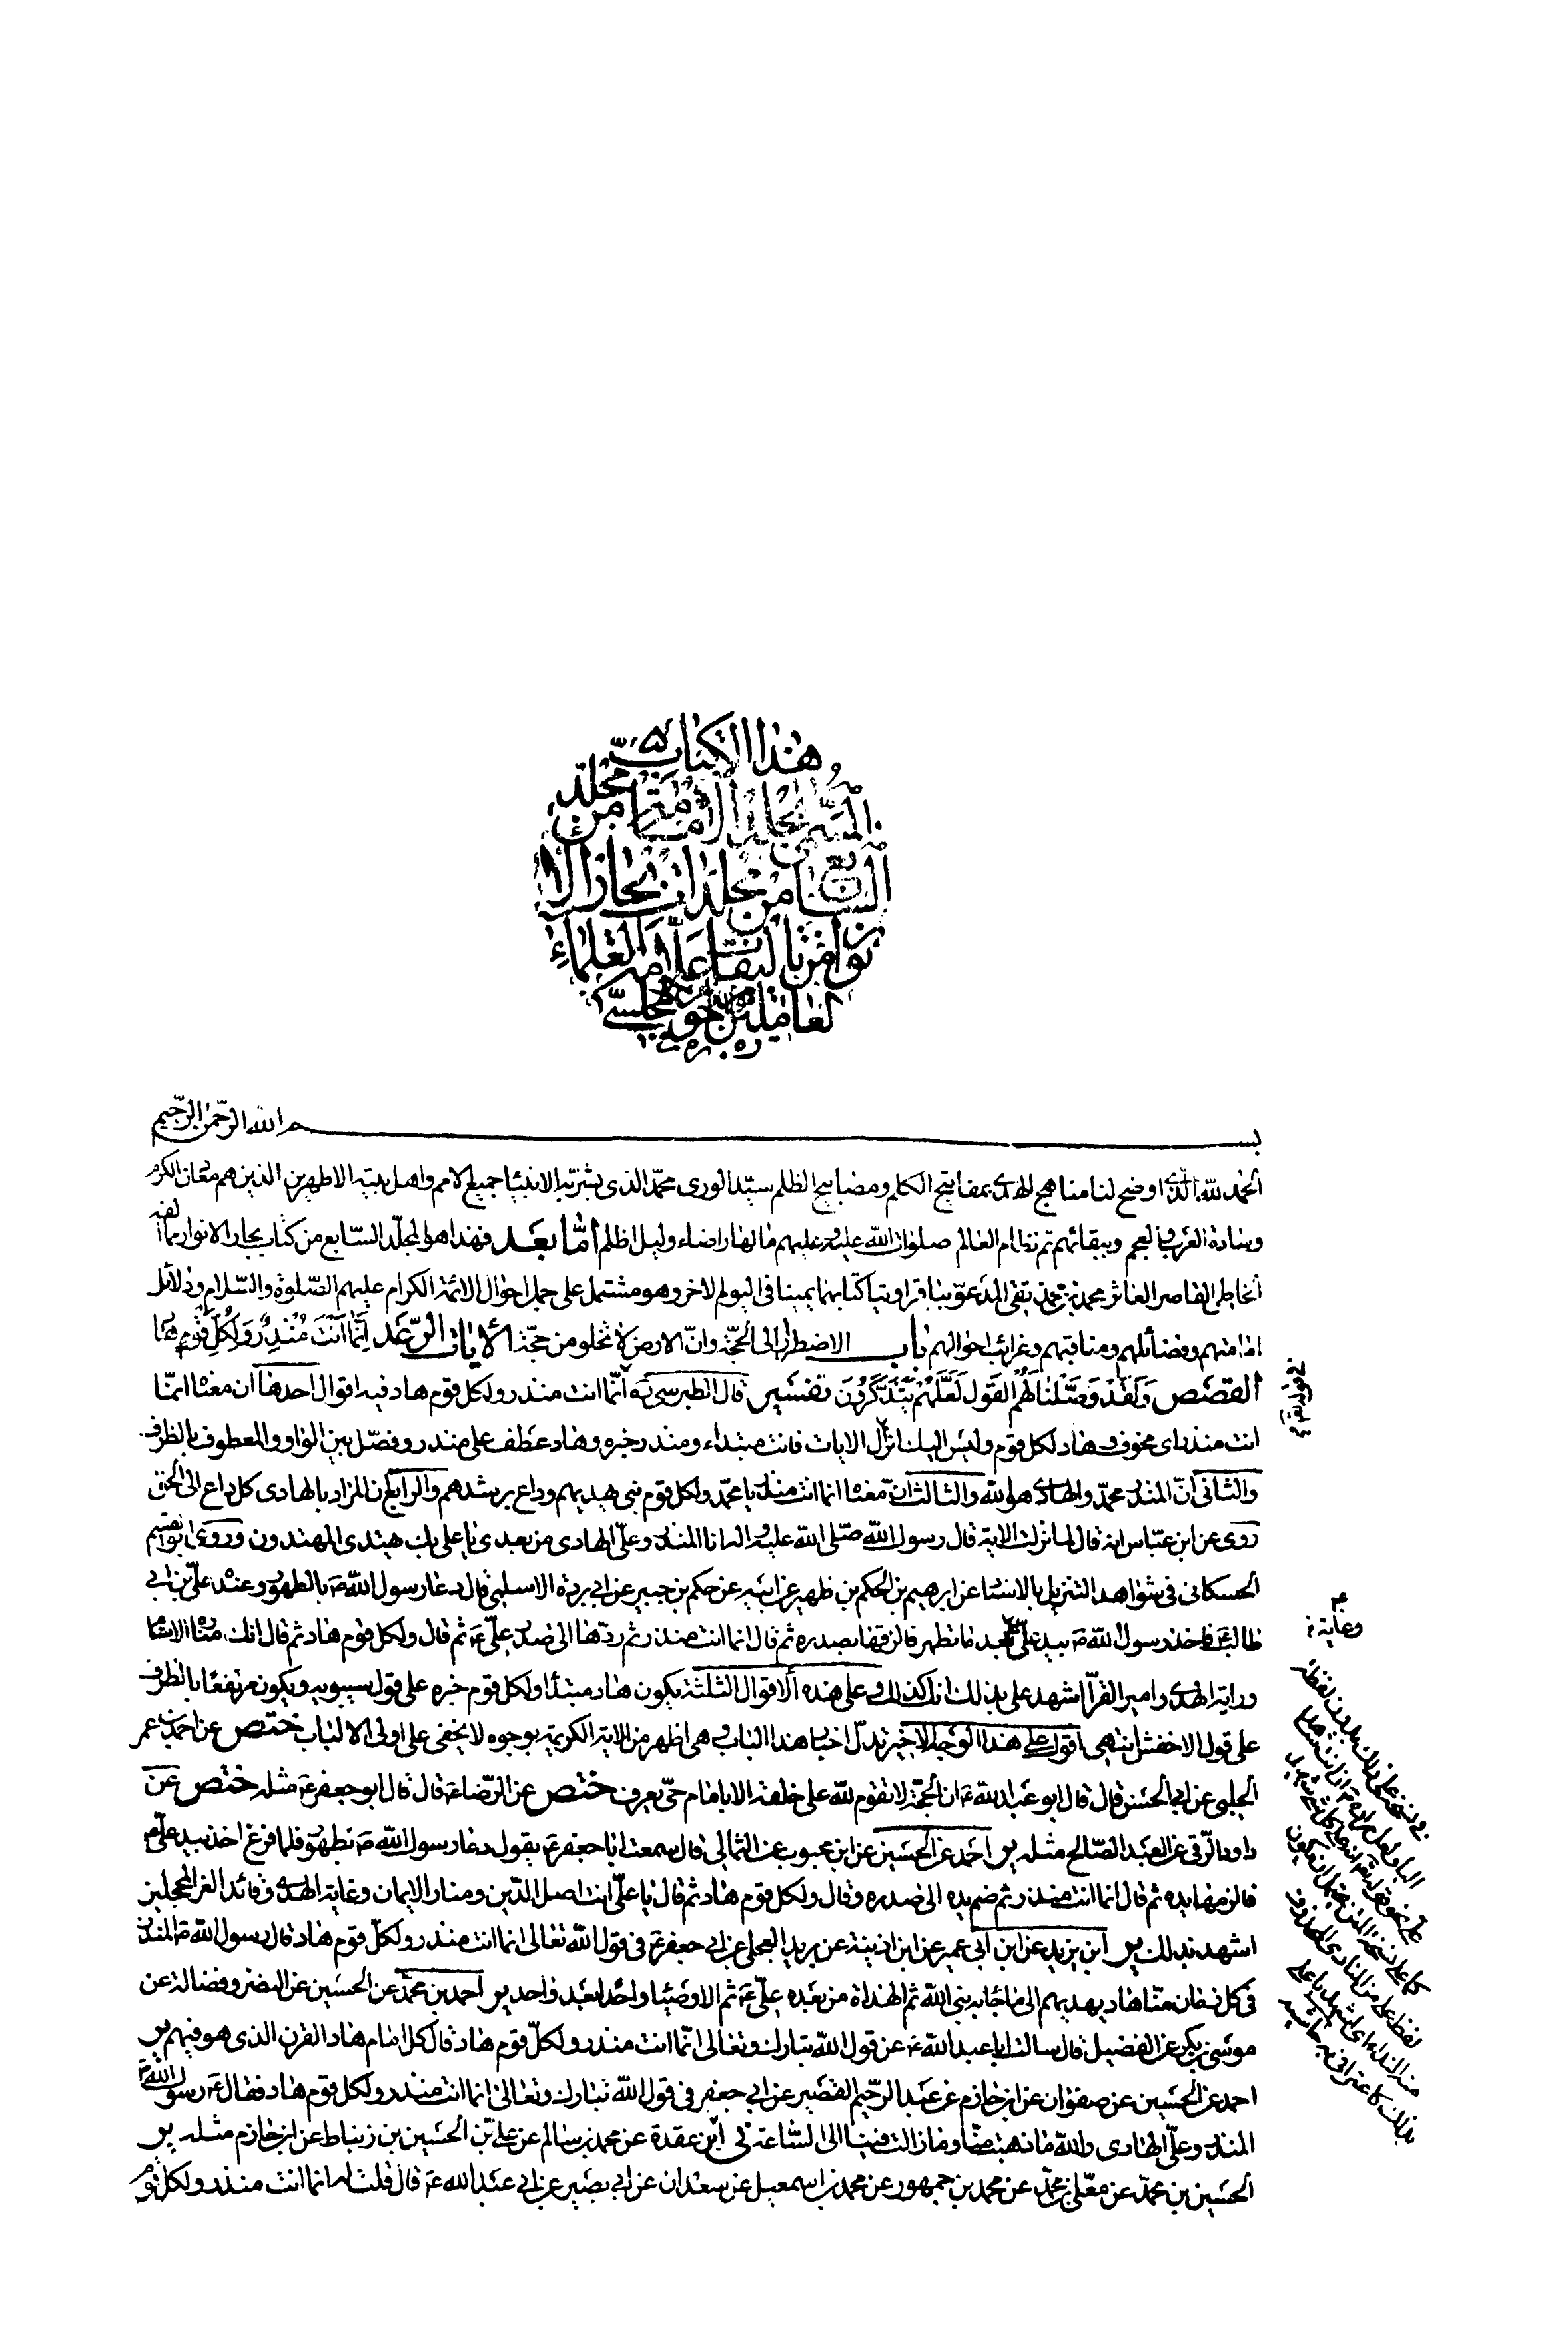 هذا الكتاب
المسمى بجلد الامامة من مجلد
السابع من مجلدات بحار الا
نوار من تاليفات علامة العلماء
بسم الله الرحمن الرحيم
الحمد لله الذى اوضح لنا مناهج الهدى بمفاتيح الكلم ومصابيح الظلم سيد الورى محمد الذى بشرت به الانبياء جميع الامم واهل بيته الاطهرين الذين هم معادن الكرم
وسادة العرب والعجم وببقائهم تم نظام العالم صلوات الله عليه وعليهم ما نهار اضاء وليل اظلم اما بعد فهذا هو المجلد السابع من كتاب بحار الانوار مما الفه
الخاطى القاصر العاثر محمد بن محمد تقى المدعو بباقر اوتيا كتابهما يمينا فى اليوم الاخر وهو مشتمل على جمل احوال الائمة الكرام عليهم الصلوة والسلام ودلائل
امامتهم وفضائلهم ومناقبهم وغرائب احوالهم باب الاضطرار الى الحجة وان الارض لا تخلو من حجة الايات الرعد انما انت منذر ولكل قوم هاد
القصص ولقد وصلنا لهم القول لعلهم يتذكرون تفسير قال الطبرسى ره انما انت منذر ولكل قوم هاد فيه اقوال احدها ان معناه انما
انت منذر اى مخوف وهاد لكل قوم وليس اليك انزال الايات فانت مبتداء ومنذر خبره وهاد عطف على منذر وفصل بين الواو والمعطوف بالظرف
والثانى ان المنذر محمد والهادى هو الله والثالث ان معناه انما انت منذر يا محمد ولكل قوم نبى يهديهم وداع يرشدهم والرابع ان المراد بالهادى كل داع الى الحق
روى عن ابن عباس انه قال لما نزلت الاية قال رسول الله صلى الله عليه واله انا المنذر وعلى الهادى من بعدى يا على بك يهتدى المهتدون وروى ابو القسم
الحسكانى فى شواهد التنزيل بالاسناد عن ابرهيم بن الحكم بن ظهير عن ابيه عن حكم بن جبير عن ابى بردة الاسلمى قال دعا رسول الله ص بالطهور وعنده على بن ابى
طالب ع فاخذ رسول الله ص بيد على ع بعد ما تطهر فالزقها بصدره ثم قال انما انت منذر ثم ردها الى صدر على ع ثم قال ولكل قوم هاد ثم قال انك منارة الانام
وراية الهدى وامير القراء اشهد على ذلك انك كذلك وعلى هذه الاقوال الثلثة يكون هاد مبتدأ ولكل قوم خبره على قول سيبويه ويكون مرتفعا بالظرف
على قول الاخفش انتهى اقول على هذا الوجه الاخير تدل اخبار هذا الباب وهى اظهر من الاية الكريمة بوجوه لا يخفى على اولى الالباب ختص عن احمد بن عمر
الحلبى عن ابى الحسن قال قال ابو عبد الله ع ان الحجة لا تقوم لله على خلقه الا بامام حتى يعرف ختص عن الرضا ع قال قال ابو جعفر ع مثله ختص عن
داود الرقى عن العبد الصالح مثله ير احمد عن الحسين عن ابن محبوب عن الثمالى قال سمعت ابا جعفر ع يقول دعا رسول الله ص بطهور فلما فرغ اخذ بيد على ع
فالزمها يده ثم قال انما انت منذر ثم ضم يده الى صدره وقال ولكل قوم هاد ثم قال يا على انت اصل الدين ومنار الايمان وغاية الهدى وقائد الغر المحجلين
اشهد بذلك ير ابن يزيد عن ابن ابى عمير عن ابن اذينة عن بريد العجلى عن ابى جعفر ع فى قول الله تعالى انما انت منذر ولكل قوم هاد قال رسول الله ص المنذر
فى كل زمان منا هاد يهديهم الى ما جاء به نبى الله ثم الهداة من بعده على ع ثم الاوصياء واحدا بعد واحد ير احمد بن محمد عن الحسين عن النضر وفضالة عن
موسى بن بكر عن الفضيل قال سالت ابا عبد الله ع عن قول الله تبارك وتعالى انما انت منذر ولكل قوم هاد قال كل امام هاد القرن الذى هو فيهم ير
احمد عن الحسين عن صفوان عن ابن حازم عن عبد الرحيم القصير عن ابى جعفر فى قول الله تبارك وتعالى انما انت منذر ولكل قوم هاد فقال ع رسول الله ص
المنذر وعلى الهادى والله ما ذهبت منا وما زالت فينا الى الساعة نى ابن عقدة عن محمد بن سالم عن على بن الحسين بن زنباط عن ابن حازم مثله ير
الحسين بن محمد عن معلى بن محمد عن محمد بن جمهور عن محمد بن اسمعيل عن سعدان عن ابى بصير عن ابى عبد الله ع قال قلت له انما انت منذر ولكل قوم
وغاية